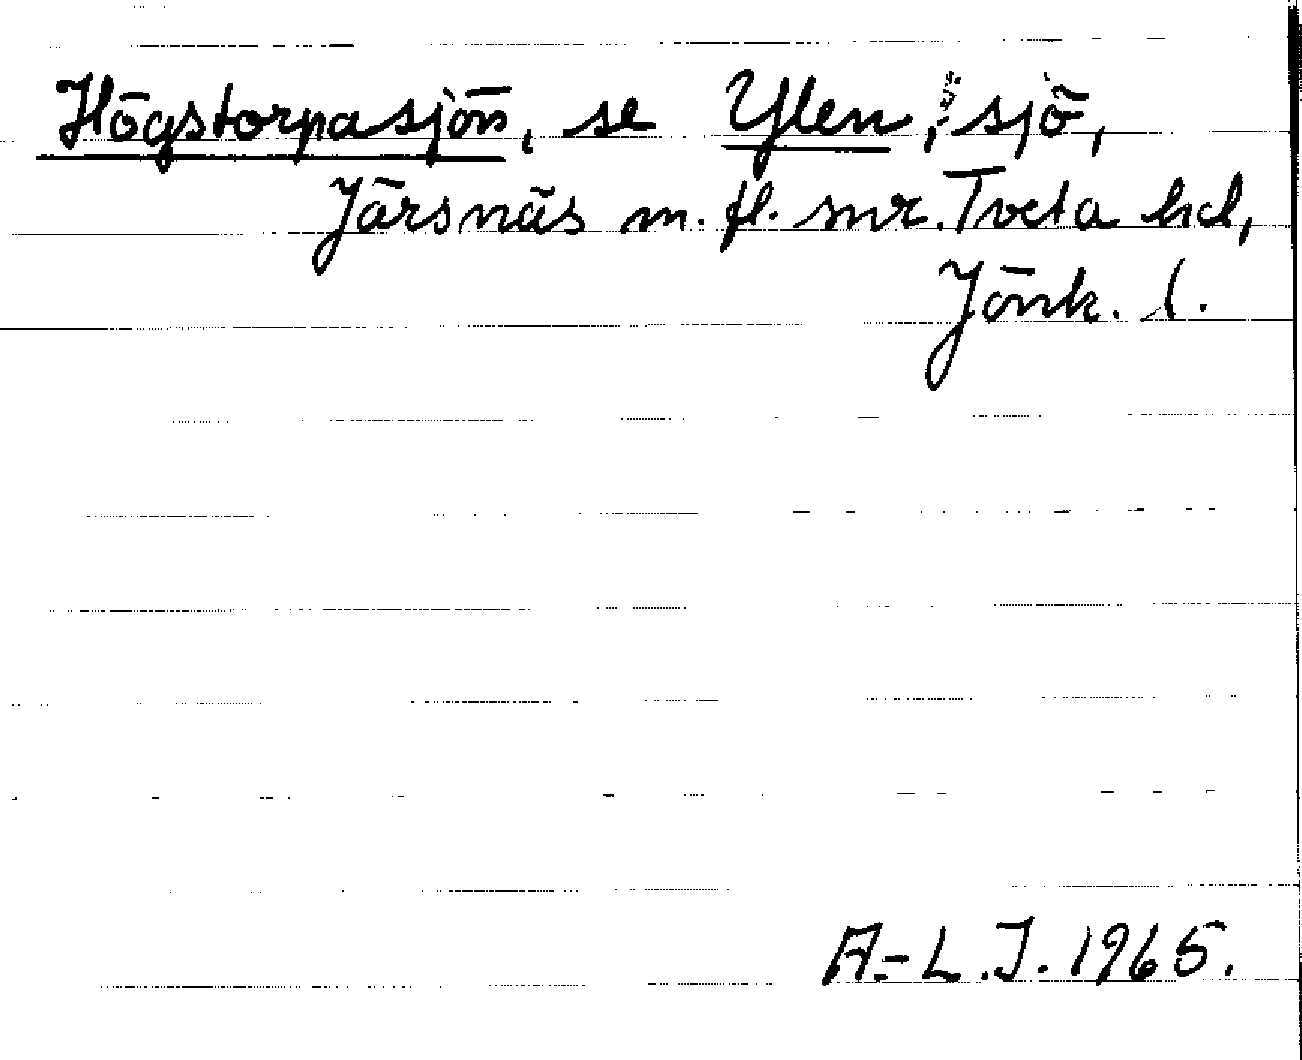 Högstorpasjön, se Ylen, sjö,
Järsnäs m. fl. snr. Tveta hd,
Jönk. l.
A.-L.J. 1965.